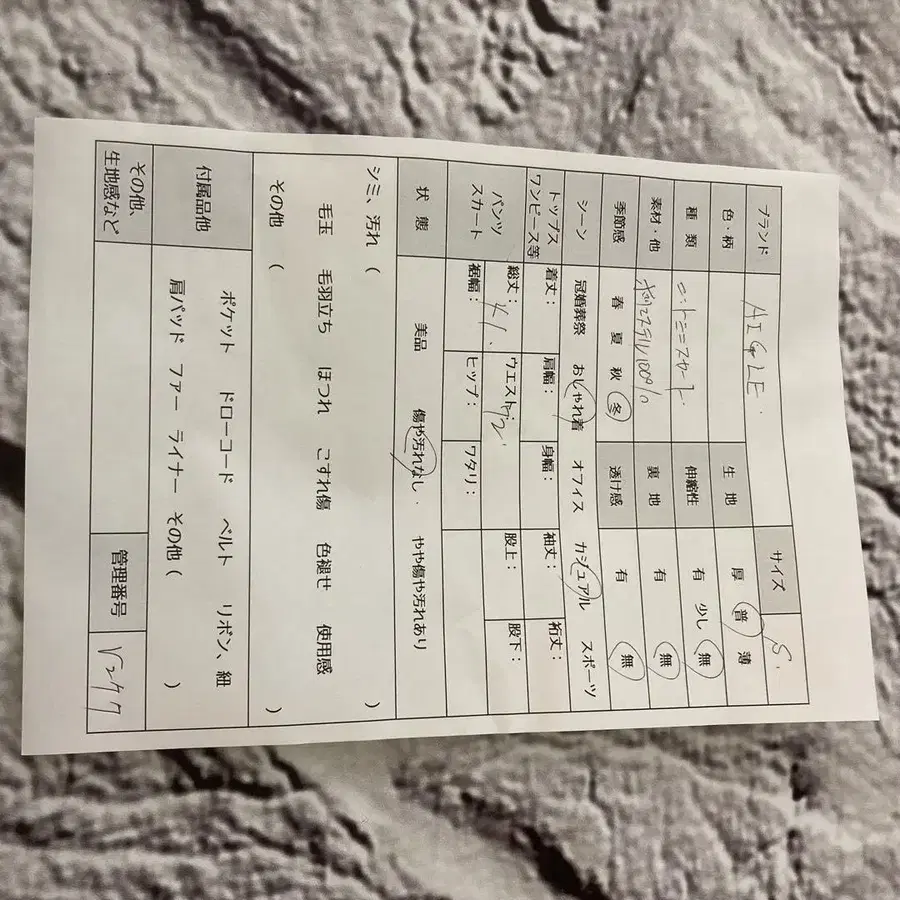 ブランド AIGLE サイズ S
色・柄 生地 厚 普 薄
種類 ニットミニスカート 伸縮性 有 少し 無
素材・他 ポリエステル100% 裏地 有 無
季節感 春 夏 秋 冬 透け感 有 無
シーン 冠婚葬祭 おしゃれ着 オフィス カジュアル スポーツ
トップス ワンピース等 着丈: 肩幅: 身幅: 袖丈: 裄丈:
パンツ スカート 総丈: 41 ウエスト: 股上: 股下:
裾幅: ヒップ: ワタリ:
状態 美品 傷や汚れなし やや傷や汚れあり
シミ、汚れ ( )
毛玉 毛羽立ち ほつれ こすれ傷 色褪せ 使用感
その他 ( )
付属品他 ポケット ドローコード ベルト リボン、紐
肩パッド ファー ライナー その他 ( )
その他、生地感など 管理番号